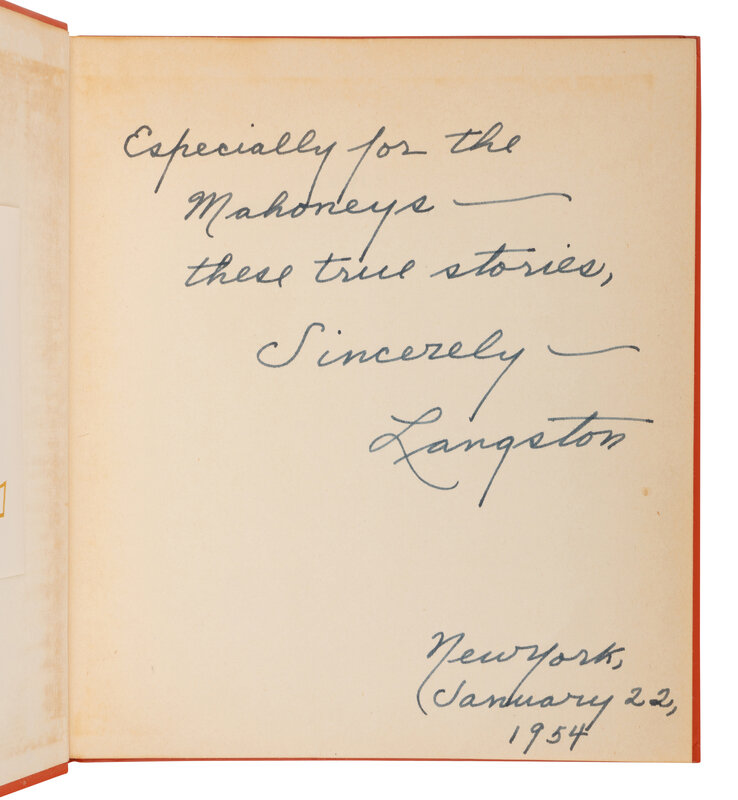 Especially for the
Mahoneys —
these true stories,
Sincerely —
Langston
New York,
January 22,
1954